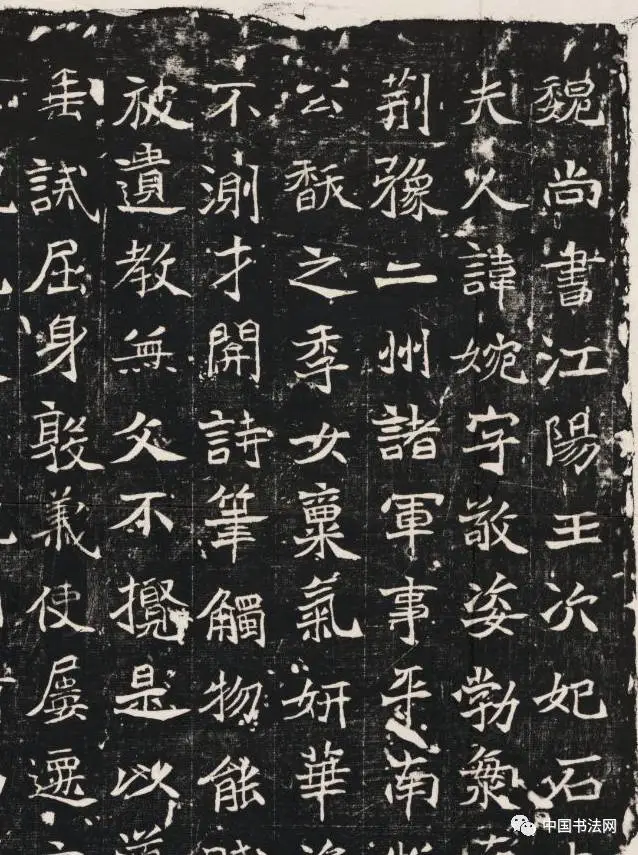 魏尚書江陽王次妃石
夫人諱婉字敬姿勃
荊豫二州諸軍事平南
公馛之季女稟氣妍華
不測才開詩筆觸物能
被遺教無文不攬是以
垂試屈身敦義使屢
中国书法网